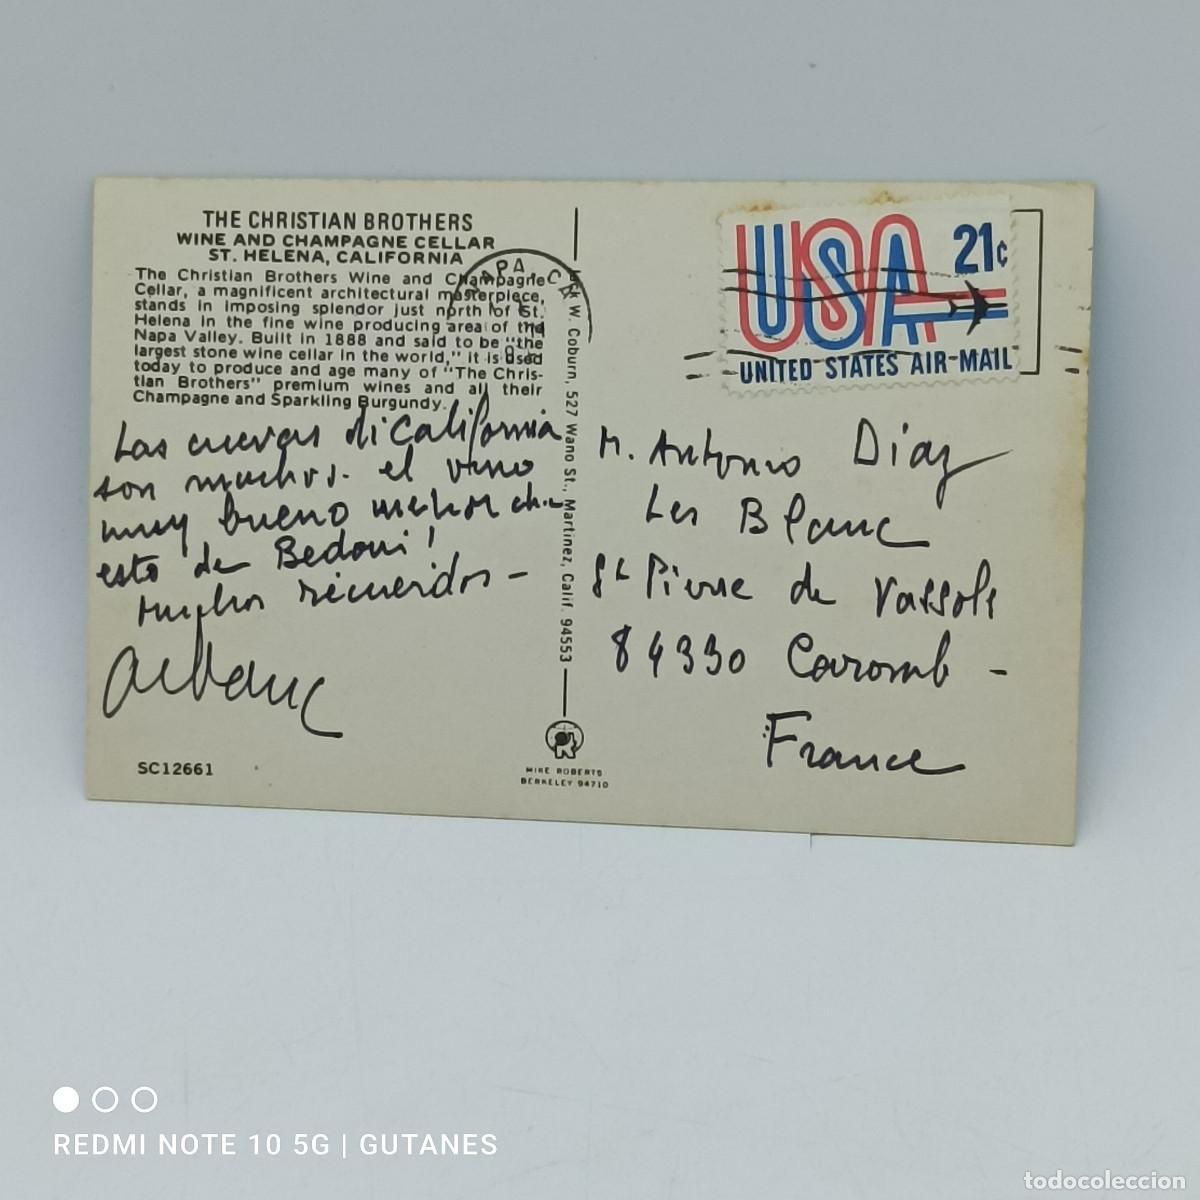 THE CHRISTIAN BROTHERS
WINE AND CHAMPAGNE CELLAR
ST. HELENA, CALIFORNIA
The Christian Brothers Wine and Champagne
Cellar, a magnificent architectural masterpiece,
stands in imposing splendor just north of St.
Helena in the fine wine producing area of the
Napa Valley. Built in 1888 and said to be "the
largest stone wine cellar in the world," it is used
today to produce and age many of "The Chris-
tian Brothers" premium wines and all their
Champagne and Sparkling Burgundy.
Las cuevas di California
son muchos. el vino
muy bueno mehor che
esto de Bedoui!
mucho recuerdos -
SC12661
NAPA, CA
W. Coburn, 527 Wano St., Martinez, Calif. 94553
MIKE ROBERTS
BERKELEY 94710
USA 21c
UNITED STATES AIR MAIL
M. Antonio Diaz
Les Blanc
St Pierre de Vassols
84330 Caromb -
France
REDMI NOTE 10 5G | GUTANES
todocoleccion